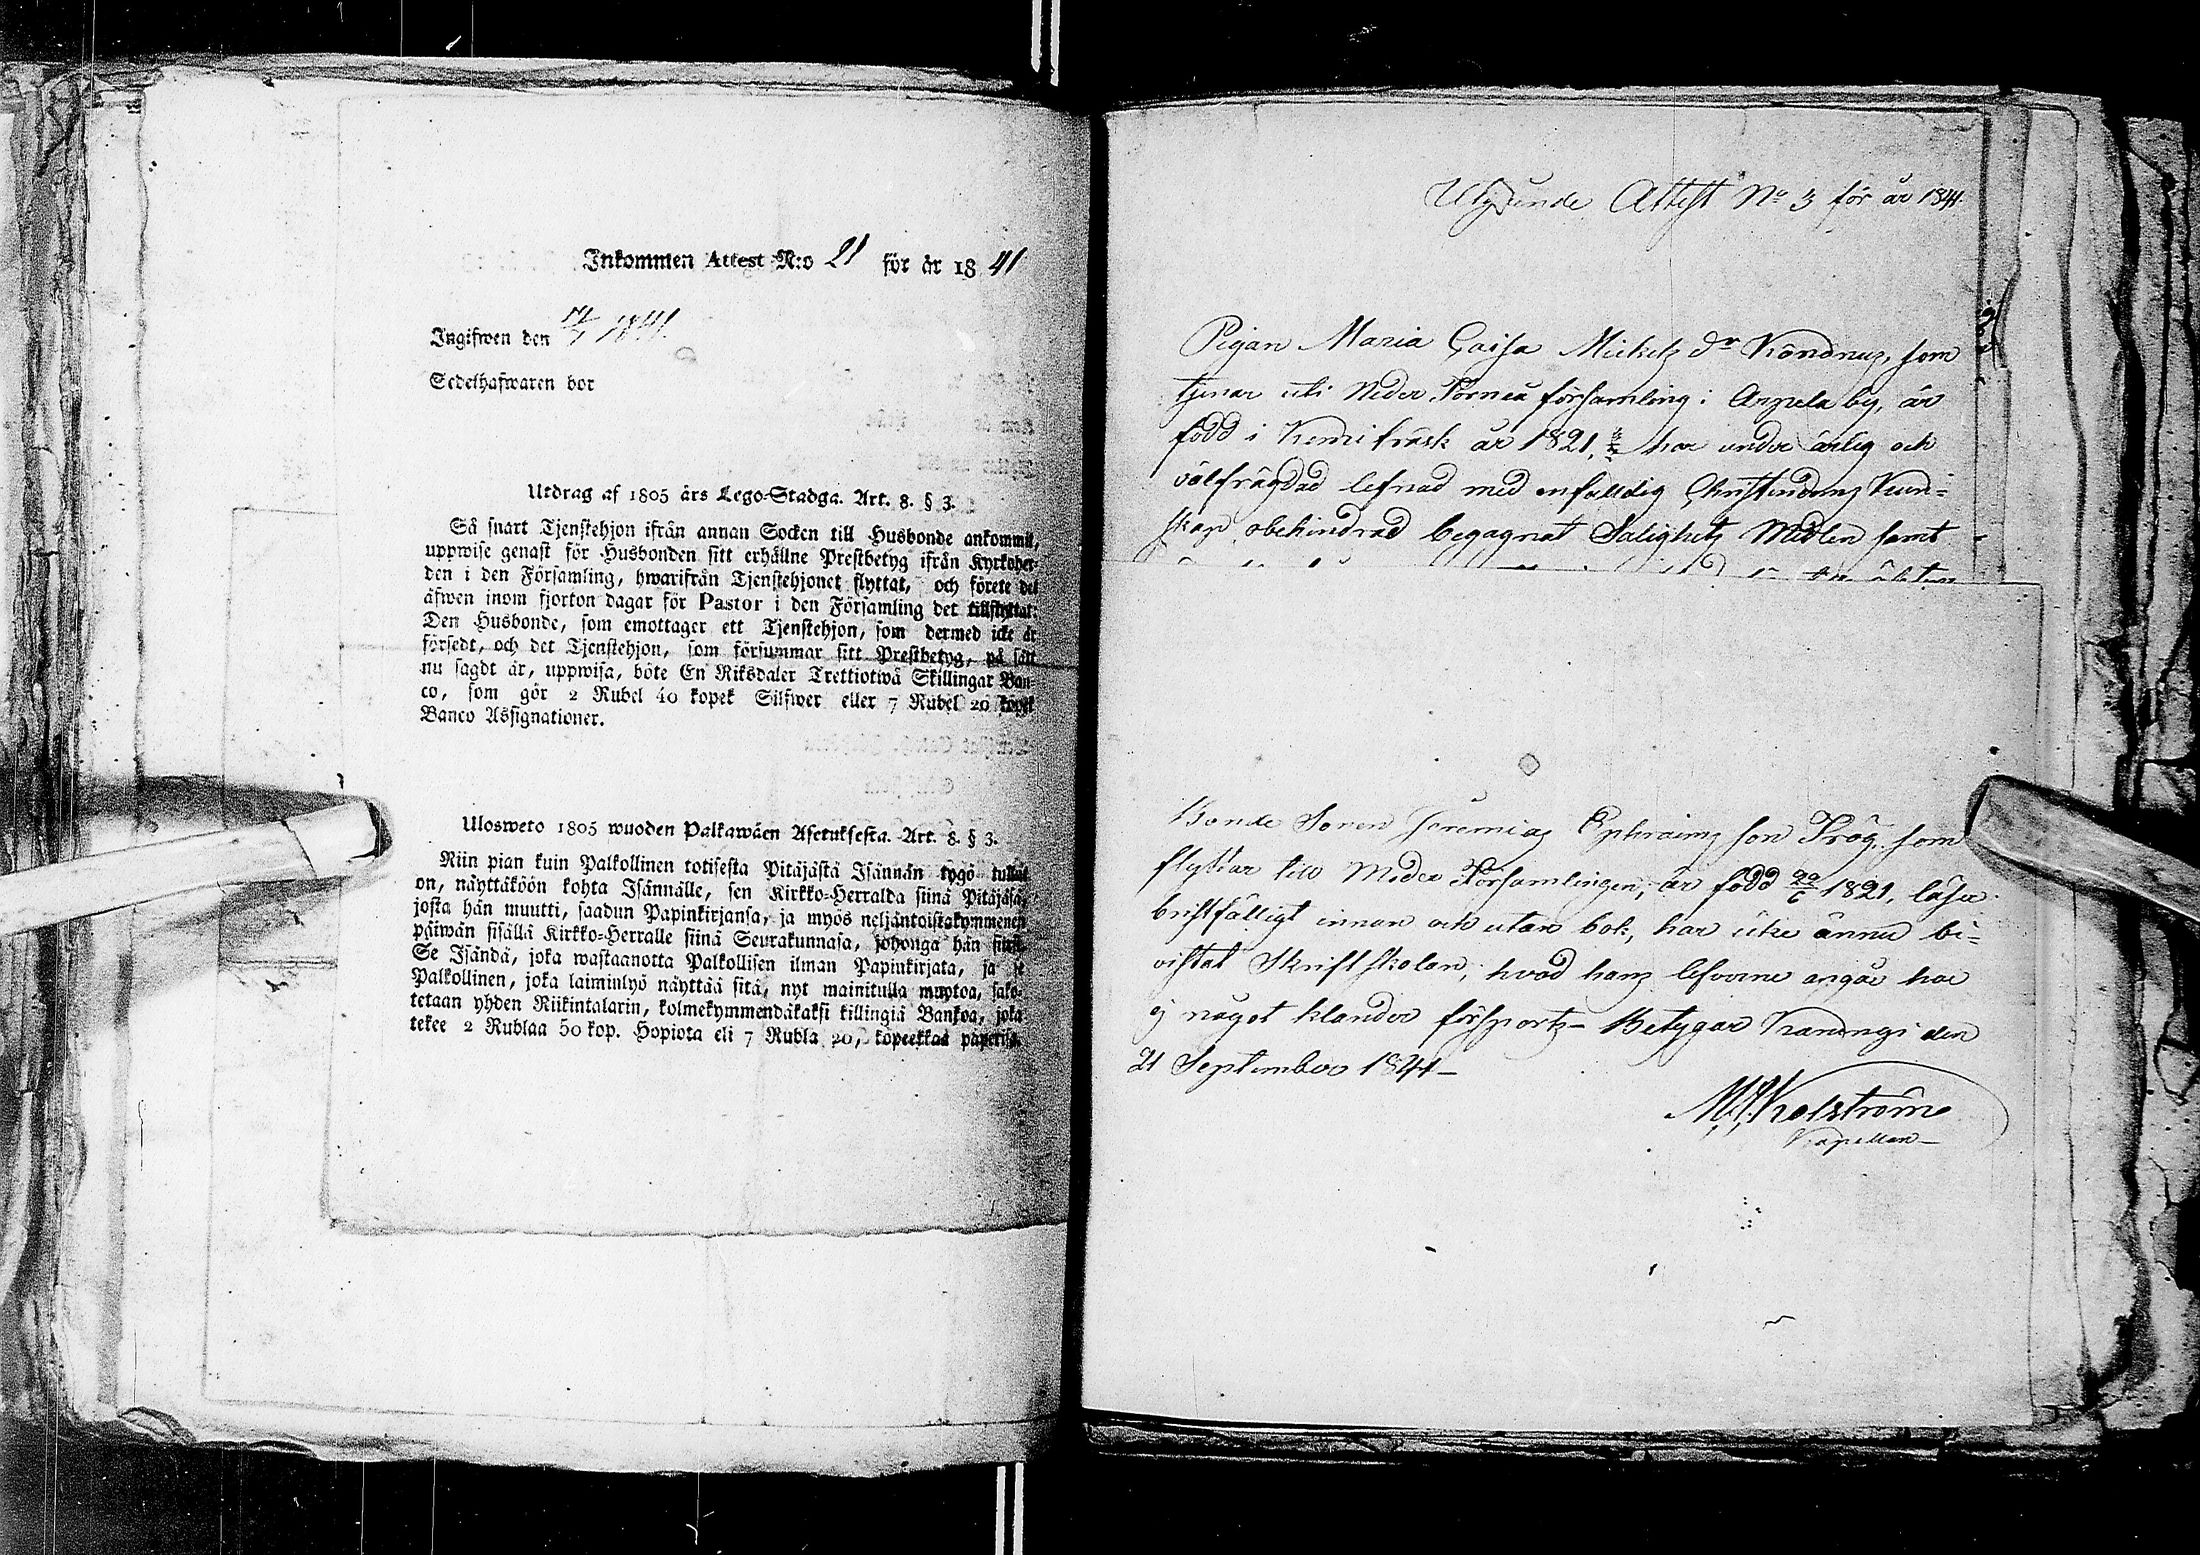 Inkommen Attest N:o 21 för år 1841
Ingifwen den 14/7 1841.
Sedelhafwaren bor
Utdrag af 1805 års Lego-Stadga. Art. 8. § 3.
Så snart Tjenstehjon ifrån annan Socken till Husbonde ankommit,
uppwise genast för Husbonden sitt erhållne Prestbetyg ifrån Kyrkoher-
den i den Församling, hwarifrån Tjenstehjonet flyttat, och förete det
äfwen inom fjorton dagar för Pastor i den Församling det tillflyttat.
Den Husbonde, som emottager ett Tjenstehjon, som dermed icke är
försedt, och det Tjenstehjon, som försummar sitt Prestbetyg, på sätt
nu sagdt är, uppwisa, böte En Riksdaler Trettiotwå Skillingar Ban-
co, som gör 2 Rubel 40 kopek Silfwer eller 7 Rubel 20 kopek
Banco Assignationer.
Ulosweto 1805 wuoden Palkawäen Asetuksesta. Art. 8. § 3.
Niin pian kuin Palkollinen toisesta Pitäjästä Isännän tygö tullut
on, näyttäköön kohta Isännälle, sen Kirkko-Herralda siinä Pitäjäsä,
josta hän muutti, saadun Papinkirjansa, ja myös neljäntoistakymmenen
päiwän sisällä Kirkko-Herralle siinä Seurakunnasa, johonga hän siirsi.
Se Isändä, joka wastaanotta Palkollisen ilman Papinkirjata, ja se
Palkollinen, joka laiminlyö näyttää sitä, nyt mainitulla muotoa, sako-
tetaan yhden Riikintalarin, kolmekymmendäkaksi killingiä Bankoa, joka
tekee 2 Rublaa 50 kop. Hopiota eli 7 Rubla 20, kopeekkaa paperisa.
Attest No 3 för år 1841.
Pigan Maria Caisa Mickels dr Köndnus, som
tjenar uti Neder Torneå församling i Arpela by, är
född i Kemi träsk år 1821, har under ärlig och
välfrägdad lefnad med enfalldig Christendoms Kun-
skap obehindrad begagnat Salighets Medlen samt
Bonde Sonen Jeremias Ephraims son Trög. som
flyttar till Neder Församlingen, är född 1821, läser
bristfälligt innan och utan bok, har icke ännu bi-
vistat Skriftskolan, hvad hans lefverne angår har
ej något klander försports - Betygar Karungi den
21 September 1841 -
Kolström
Kapellan -